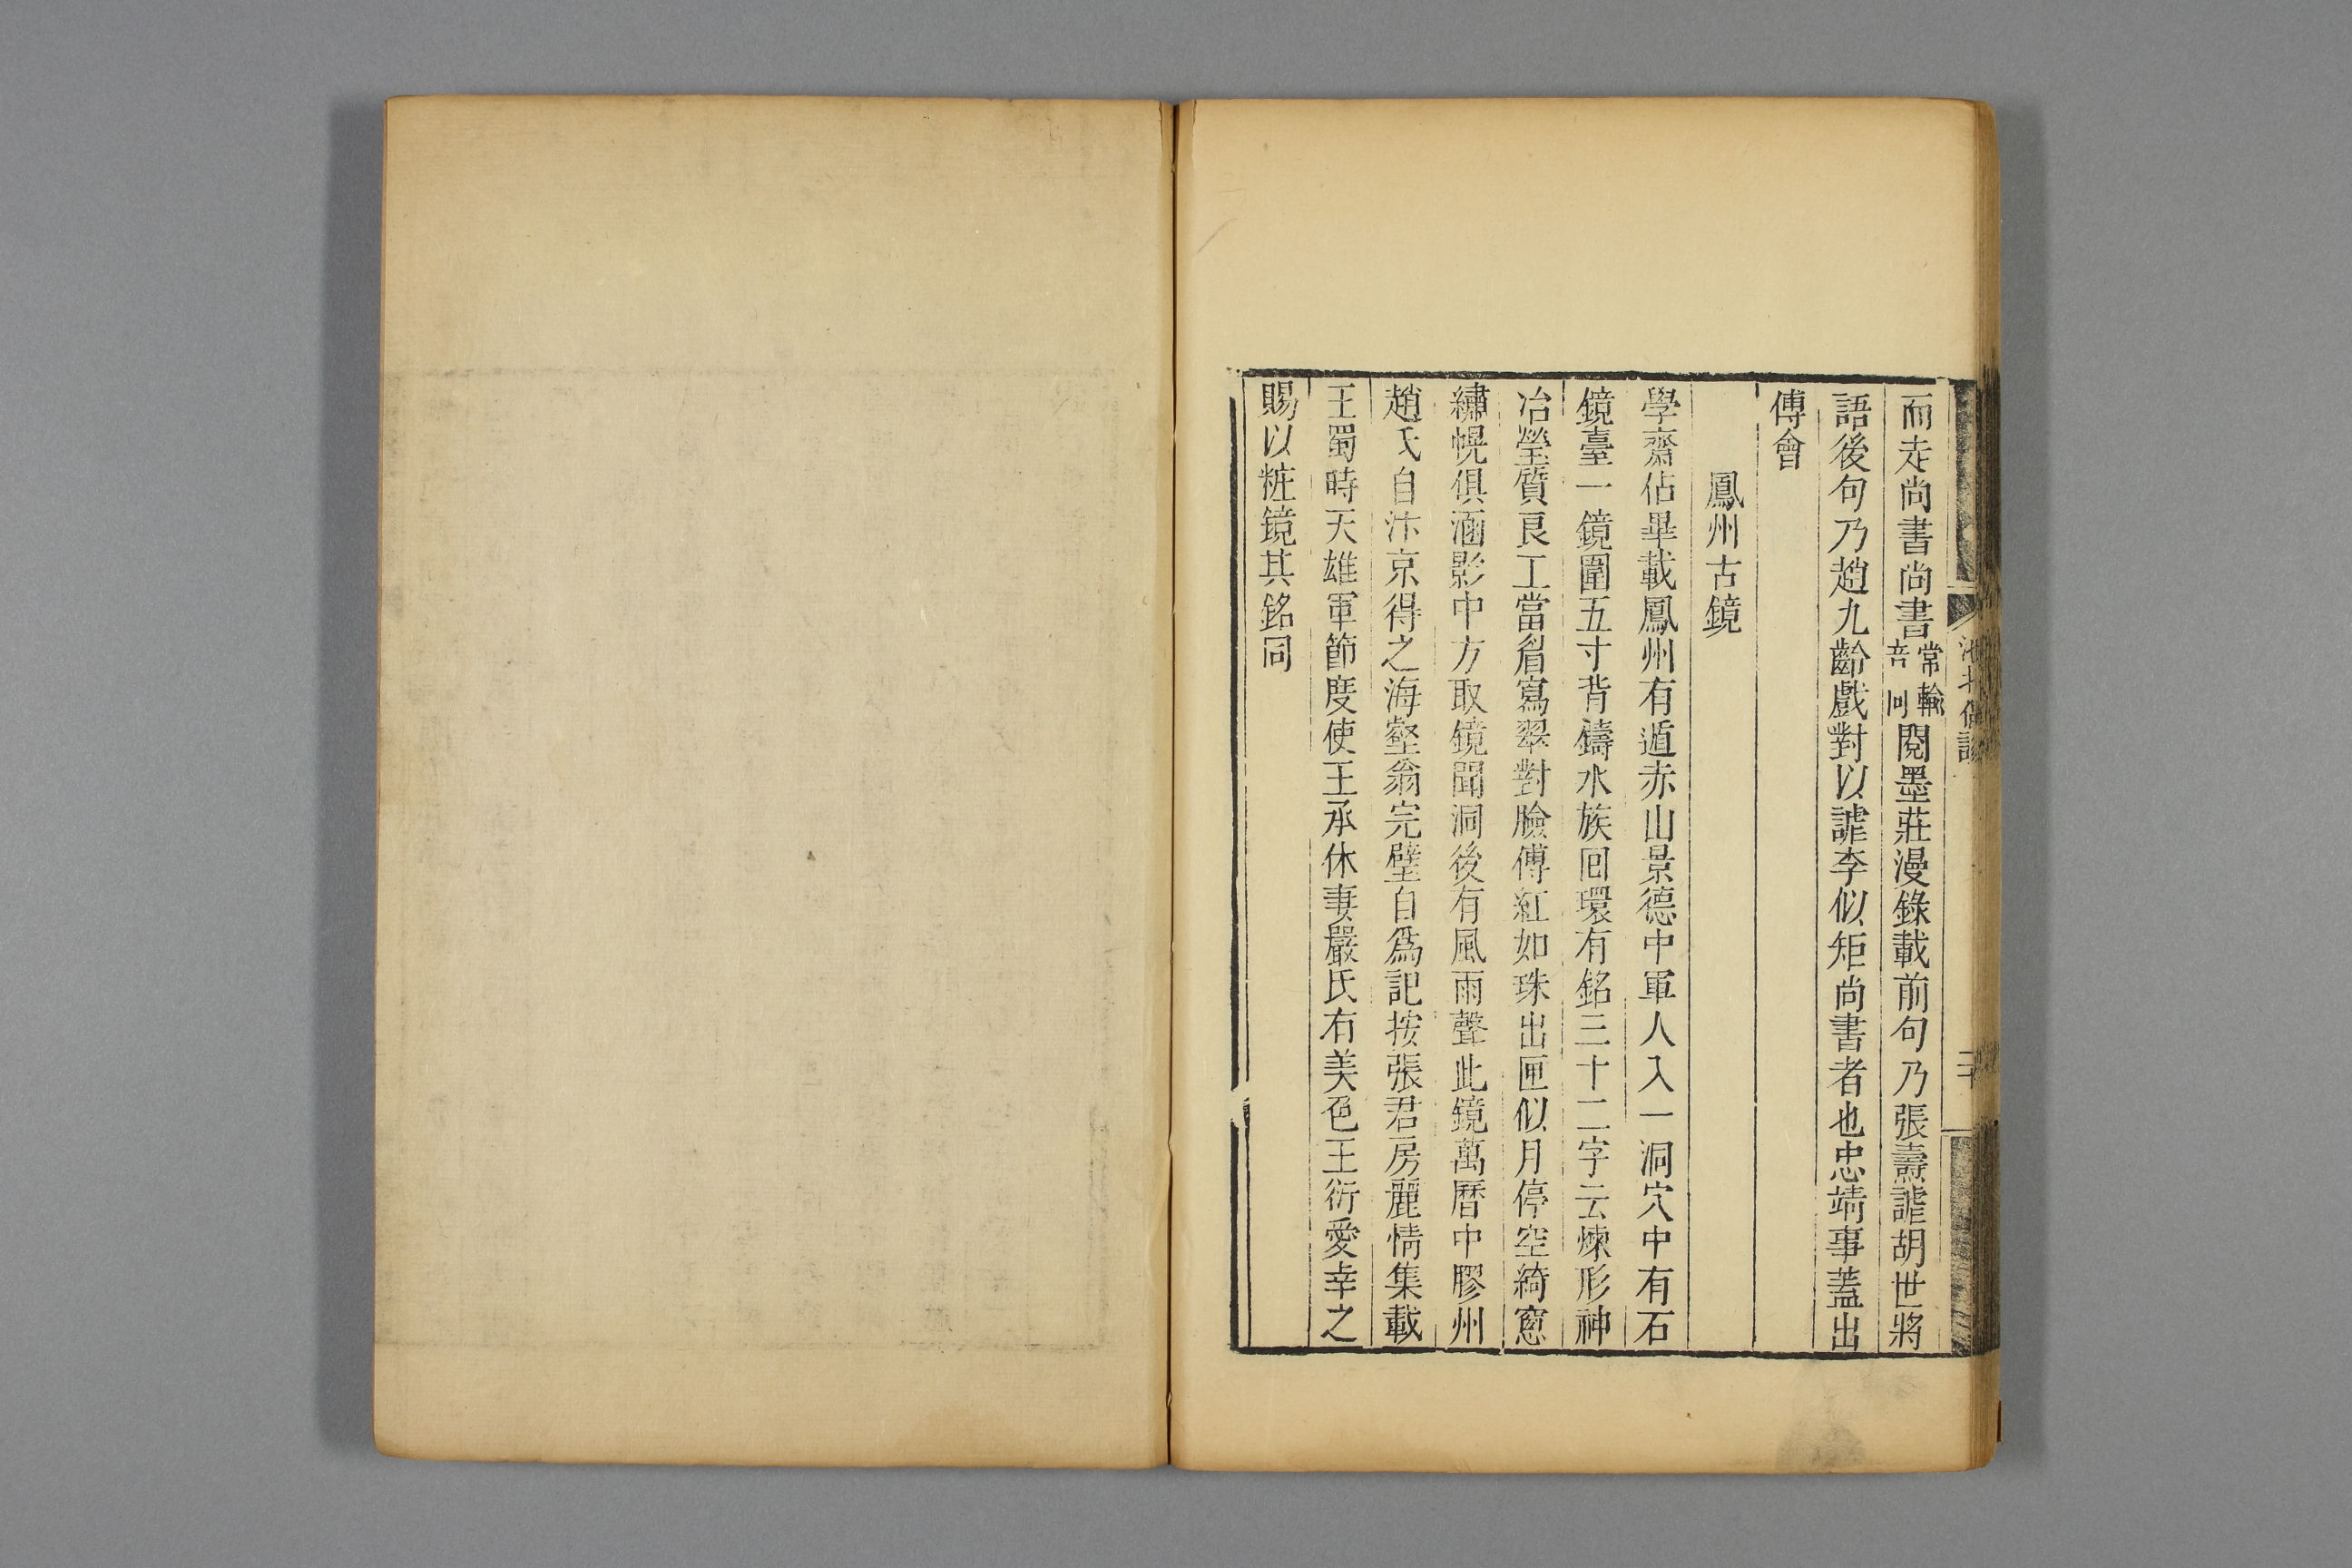 而走尚書尚書常輪音同閱墨莊漫錄載前句乃張壽謔胡世將
語後句乃趙九齡戲對以謔李似矩尚書者也忠靖事蓋出
傅會
鳳州古鏡
學齋佔畢載鳳州有遁赤山景德中軍人入一洞穴中有石
鏡臺一鏡圍五寸背鑄水族囘環有銘三十二字云煉形神
冶瑩質良工當眉寫翠對臉傅紅如珠出匣似月停空綺窻
繡幌俱涵影中方取鏡聞洞後有風雨聲此鏡萬曆中膠州
趙氏自汴京得之海壑翁完璧自爲記按張君房麗情集載
王蜀時天雄軍節度使王承休妻嚴氏有美色王衍愛幸之
賜以粧鏡其銘同
池北偶談
二十